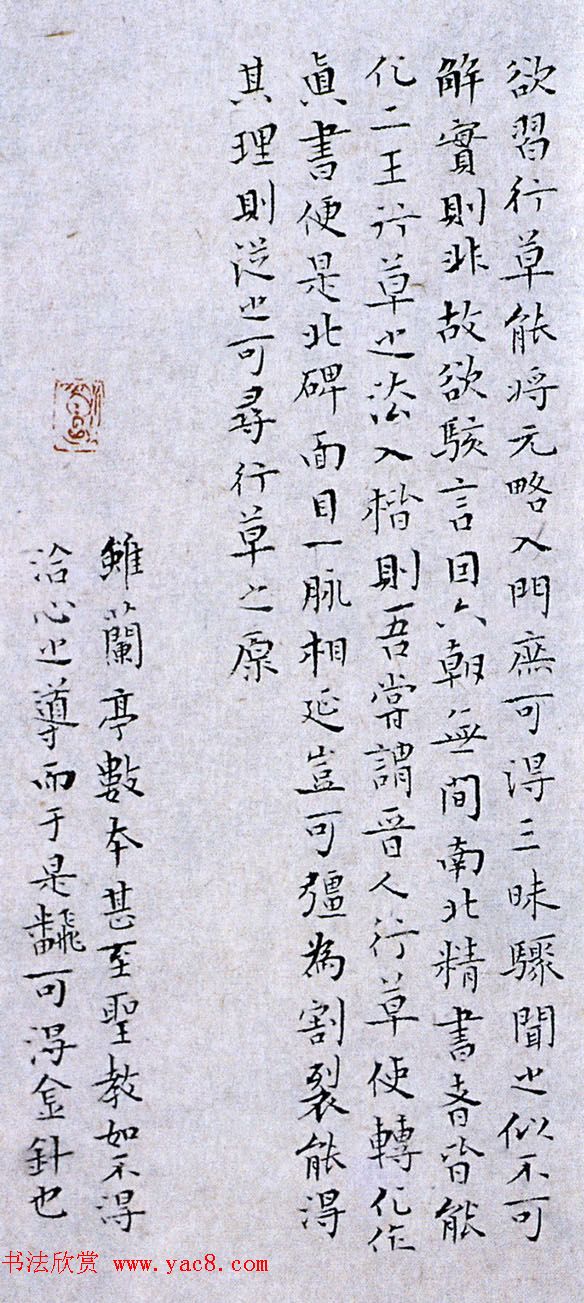 欲習行草能將元略入門齋可得三昧驟聞之似不可
解實則非故欲駭言因六朝無間南北精書者皆能
化二王行草之法入楷則吾嘗謂晉人行草使轉化作
眞書便是北碑面目一脈相延豈可彊為割裂能得
其理則從之可尋行草之原
雖蘭亭數本甚至聖教如不得
洽心之導而于是飜可得金針也
书法欣赏 www.yac8.com